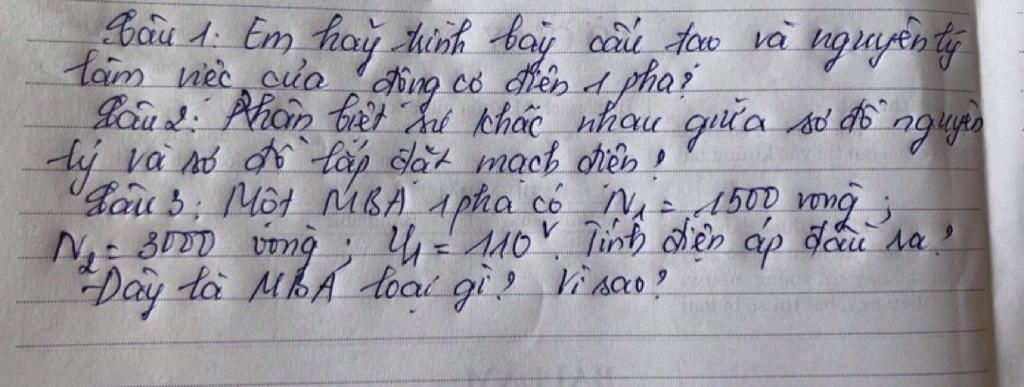 Câu 1: Em hãy trình bày cấu tạo và nguyên lý
làm việc của động cơ điện 1 pha?
Câu 2: Phân biệt sự khác nhau giữa sơ đồ nguyên
lý và sơ đồ lắp đặt mạch điện?
Câu 3: Một MBA 1 pha có N₁ = 1500 vòng;
N₂ = 3000 vòng; U₁ = 110ᵛ. Tính điện áp đầu ra?
Đây là MBA loại gì? Vì sao?